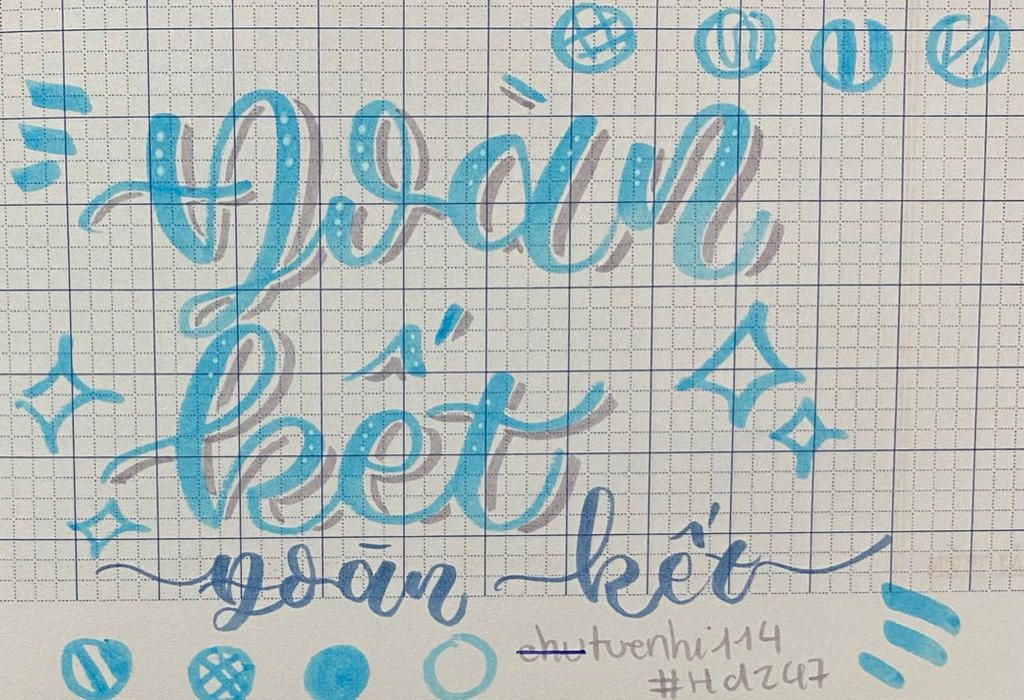 Đoàn
kết
đoàn kết
chutuenhi114
#Hd247